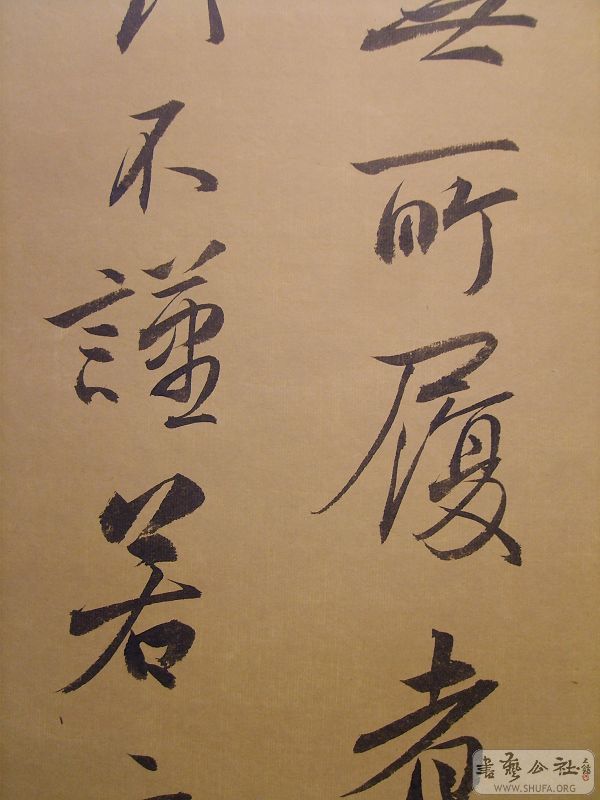 無所履者
不謹若
書藝公社
WWW.SHUFA.ORG